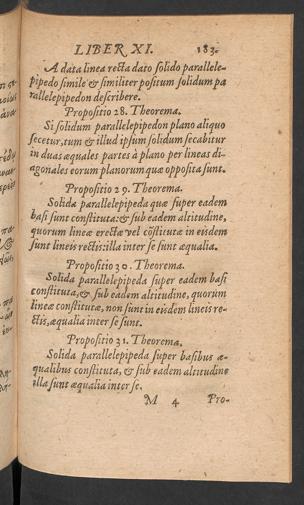 LIBER XI. 183.
A data linea recta dato solido parallele-
pipedo simile & similiter positum solidum pa
rallelepipedon describere.
Propositio 28. Theorema.
Si solidum parallelepipedon plano aliquo
secetur, tum & illud ipsum solidum secabitur
in duas æquales partes à plano per lineas di-
agonales eorum planorum quæ opposita sunt.
Propositio 29. Theorema.
Solida parallelepipeda quæ super eadem
basi sunt constituta: & sub eadem altitudine,
quorum lineæ erectæ vel cōstitutæ in eisdem
sunt lineis rectis: illa inter se sunt æqualia.
Propositio 30. Theorema.
Solida parallelepipeda super eadem basi
constituta, & sub eadem altitudine, quorum
lineæ constitutæ, non sunt in eisdem lineis re-
ctis, æqualia inter se sunt.
Propositio 31. Theorema.
Solida parallelepipeda super basibus æ-
qualibus constituta, & sub eadem altitudine
illa sunt æqualia inter se.
M 4 Pro-